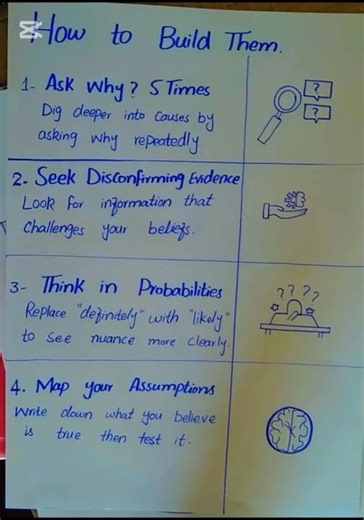 How to Build Them.
1- Ask Why? 5 Times
Dig deeper into causes by
asking why repeatedly
? 
?
2. Seek Disconfirming Evidence
Look for information that
challenges your beliefs.
3- Think in Probabilities
Replace "definitely" with "likely"
to see nuance more clearly.
? ? ? ?
4. Map your Assumptions
Write down what you believe
is true then test it.